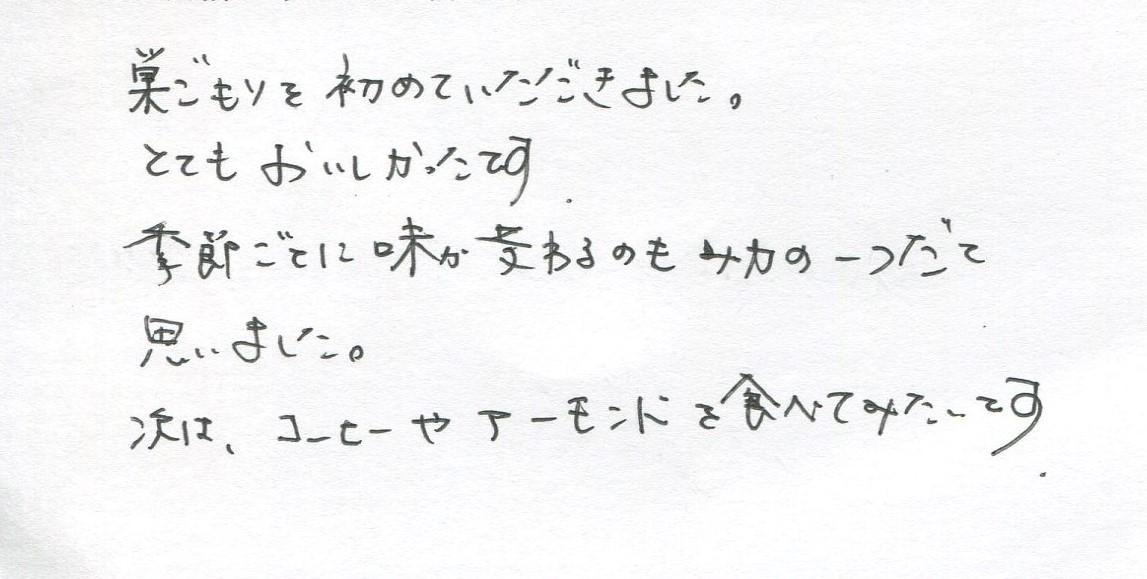 巣ごもりを初めていただきました。
とてもおいしかったです.
季節ごとに味が変わるのもみ力の一つだと
思いました。
次は、コーヒーやアーモンドを食べてみたいです.